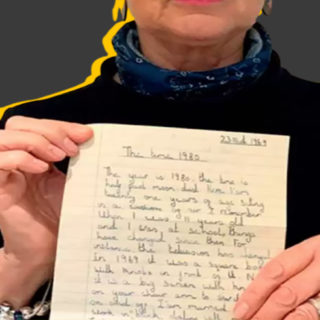 23rd 1969
The time 1980
The year is 1980, the time is
half past moon dad time I am
twenty one years of age sitting
in a of air I remember
When I was 11 years old
and I was at school, things
have changed since then For
instance the television has changed
in 1969 it was a square box
with knobs in front of it Now
it is a big screen with
on your chair arm to
I am married
work in